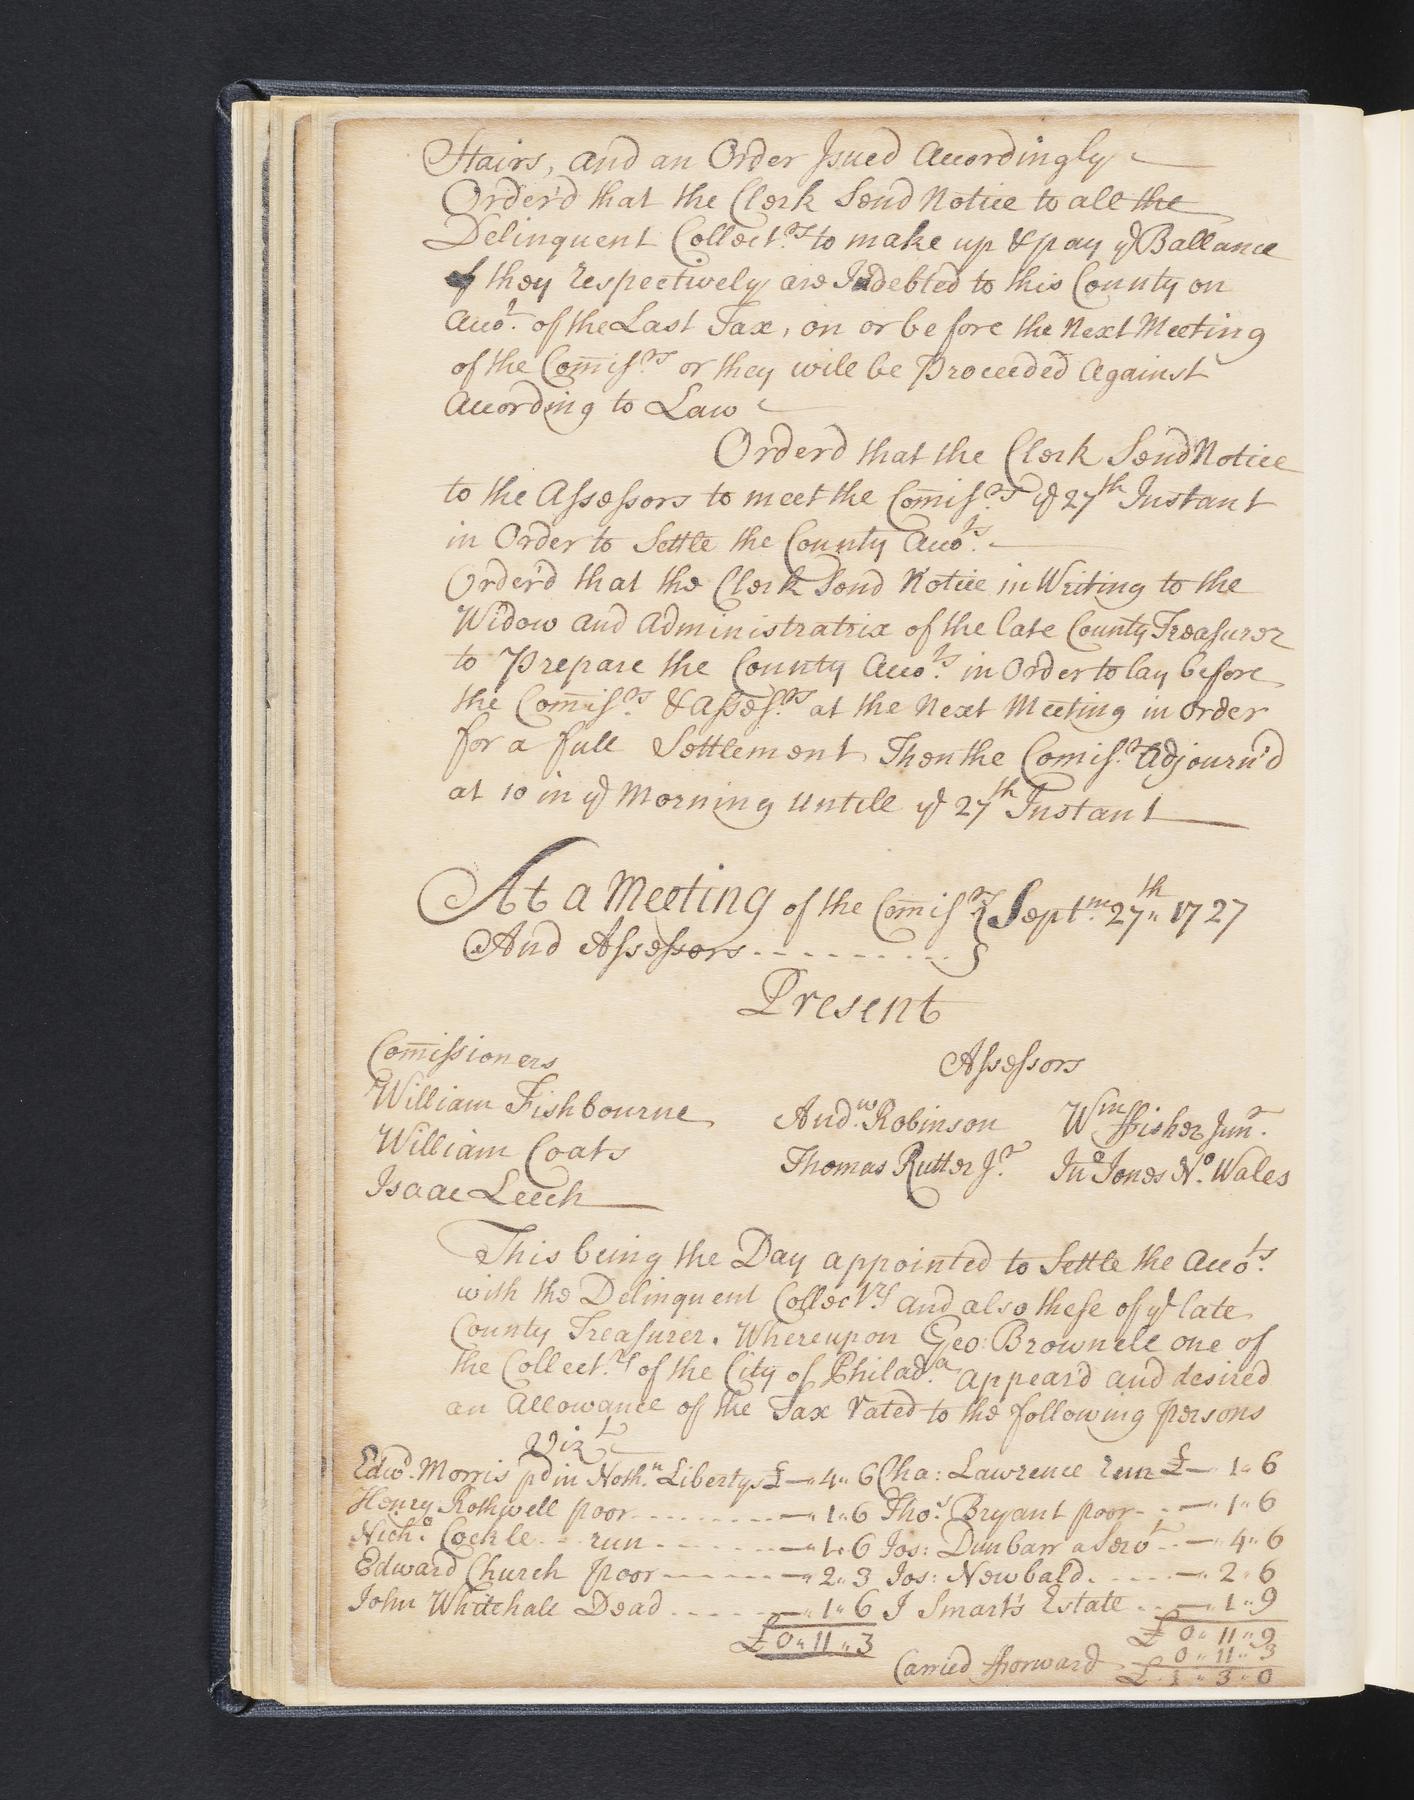 Stairs, and an Order Issued Accordingly
Order'd that the Clerk Send Notice to all the
Delinquent Collect.rs to make up & pay ye Ballance
they respectively are Indebted to this County on
Acco.t of the Last Tax, on or before the Next Meeting
of the Comiss.rs or they will be Proceeded Against
According to Law
Orderd that the Clerk Send Notice
to the Assessors to meet the Comiss.rs ye 27th Instant
in Order to Settle the County Acco.ts
Order'd that the Clerk Send Notice in Writing to the
Widow and Administratrix of the late County Treasurer
to Prepare the County Acco.ts in Order to lay before
the Comiss.rs & Assess.rs at the Next Meeting in order
for a full Settlement Then the Comiss.rs Adjourn'd
at 10 in ye Morning Untill ye 27th Instant
At a Meeting of the Comiss.rs } Sept.m 27th 1727
And Assessors - - - - - - - - - }
Present
Comissioners
Assessors
William Fishbourne And.w Robinson Wm ffisher Jun.r
William Coats Thomas Rutter J.r Jno Jones No. Wales
Isaac Leech
This being the Day appointed to Settle the Acco.ts
with the Delinquent Collect.rs and also these of ye late
County Treasurer. Whereupon Geo: Brownell one of
the Collect.rs of the City of Philad.a appear'd and desired
an Allowance of the Tax rated to the following persons
Vizt
Edwd. Morris pd in Noth.n Libertys £ — " 4 " 6 Cha: Lawrence run £ — " 1 " 6
Henry Rothwell poor - - - - - - — " 1 " 6 Thos. Bryant poor - - — " 1 " 6
Nicho. Cockle - - run - - - - - - — " 1 " 6 Jos: Dunbarr a Servt - - — " 4 " 6
Edward Church poor - - - - - - — " 2 " 3 Jos: Newbald - - - - — " 2 " 6
John Whitehall Dead - - - - - — " 1 " 6 J Smart's Estate - - — " 1 " 9
£ 0 " 11 " 3 £ 0 " 11 " 9
0 " 11 " 3
Carried fforward £ 1 " 3 " 0